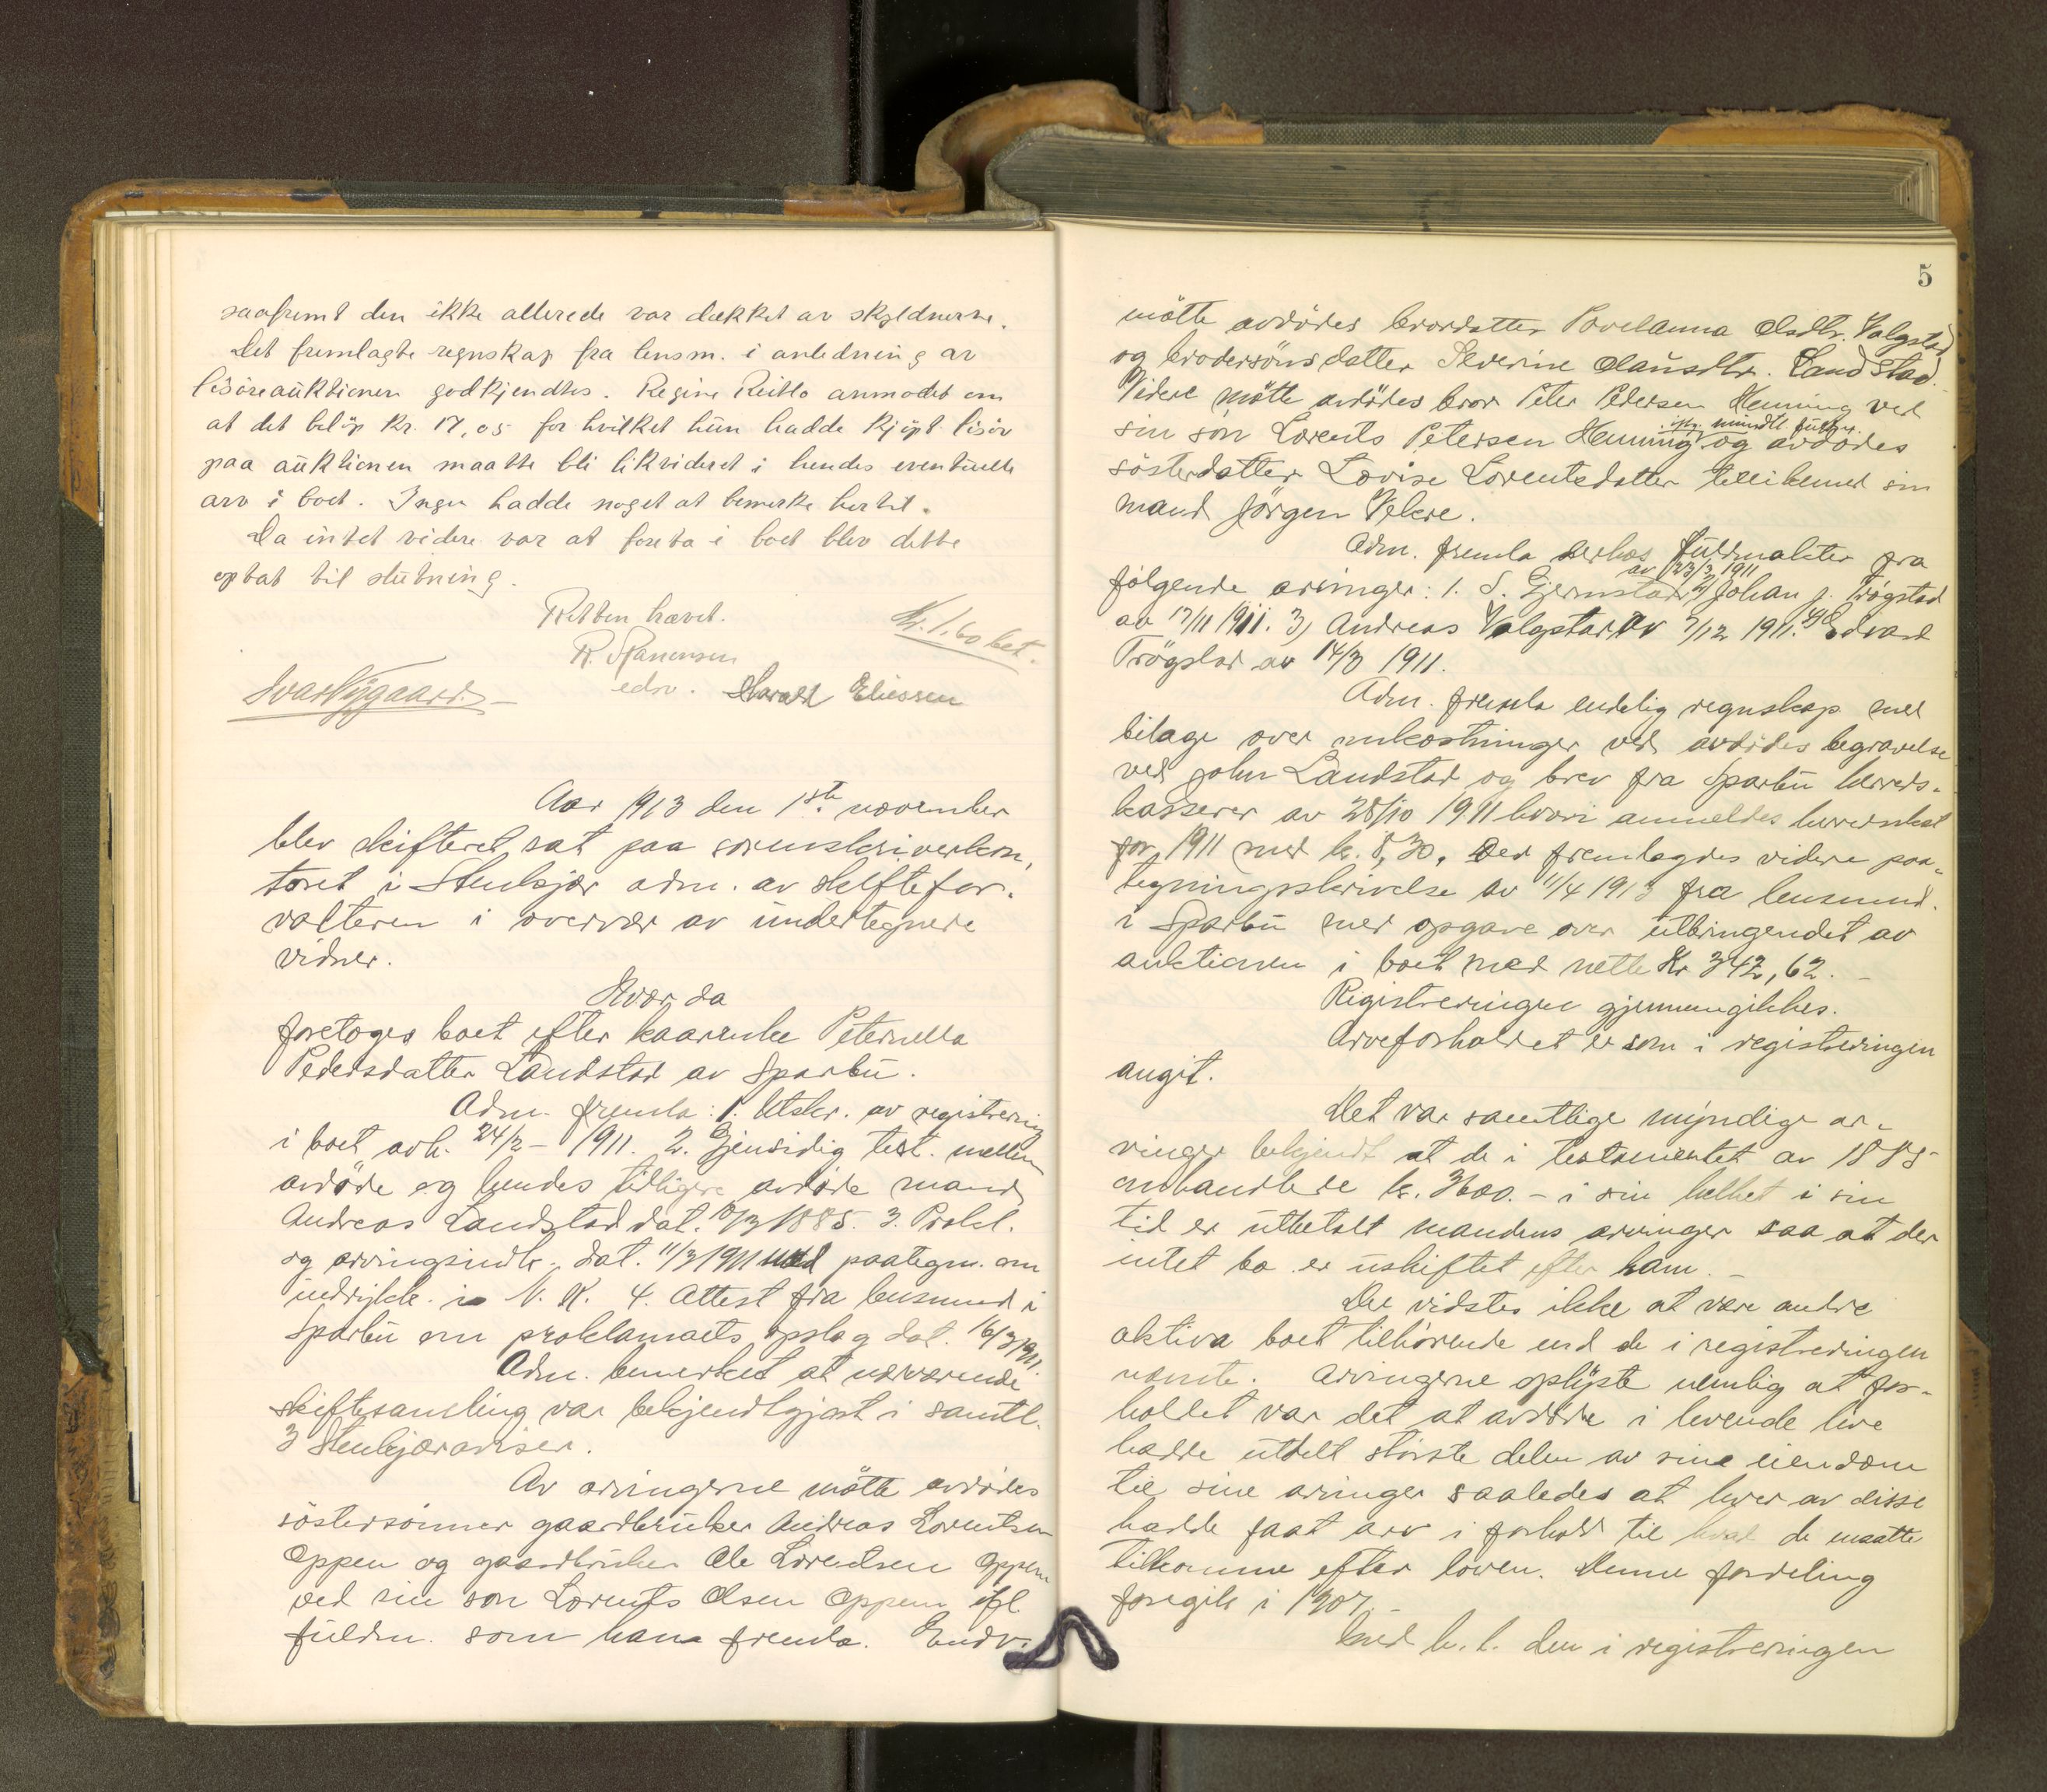 saafremt den ikke allerede var dækket av skyldnerne.
Det fremlagte regnskap fra lensm. i anledning av
løsöreauktionen godkjendtes. Regine anmodet om
at det belöp kr. 17,05 for hvilket hun hadde kjöpt lösör
paa auktionen maatte bli likvideret i hendes eventuelle
arv i boet. Ingen hadde noget at bemerke hertil.
Da intet videre var at foreta i boet blev dette
optat til slutning.
Retten hævet.
Kr. 1.60 bet.
edsv. Harald Eliessen
Aar 1913 den 1ste november
blev skifteret sat paa sorenskriverkon-
toret i Stenkjær adm. av skiftefor-
valteren i overvær av undertegnede
vidner.
Hvor da
foretoges boet efter kaarenke Peternella
Pedersdatter Landstad av Sparbu.
Adm. fremla: 1. Utskr. av registrering
i boet avh. 24/2 - 1911. 2. Gjensidig test. mellem
avdöde og hendes tidligere avdöde mand
Andreas Landstad dat. /3 1885. 3. Prokl.
og arvingsindk. dat. 11/3 1911 med paategn. om
indrykk. i N. K. 4. Attest fra lensmand i
Sparbu om proklamaets opslag dat. 16/3 1911.
Adm. bemerket at nærværende
skiftesamling var bekjendtgjort i samtl.
3 Stenkjæraviser.
Av arvingerne mötte avdödes
söstersönner gaardbruker Andreas Lorentsen
Oppem og gaardbruker Ole Lorentsen Oppem
ved sin sön Lorents Olsen Oppem ifl.
fuldm. som han fremla. Endv.
5
mötte avdödes brordatter Povelanna Olsdtr. Valgstad
og brodersönsdatter Severine Olausdtr. Landstad.
Videre mötte avdödes bror Peter Pedersen Henning ved
sin sön Lorents Petersen Henning ifl. mundtl. fuldm. og avdödes
sösterdatter Lovise Lorentsdatter tillikemed sin
mand Jörgen Velere.
Adm. fremla derhos fuldmakter fra
fölgende arvinger: 1. S. Gjernstad av 23/3 1911 2) Johan J. Trögstad
av 17/11 1911. 3) Andreas Valgstad av 7/12 1911. 4) Edvard
Trögstad av 14/3 1911.
Adm. fremla endelig regnskap med
bilage over omkostninger ved avdödes begravelse
ved John Landstad og brev fra Sparbu herreds-
kasserer av 28/10 1911 hvori anmeldes herredsskat
for 1911 med kr. 8,30. Der fremlagdes videre paa-
tegningsskrivelse av 11/4 1913 fra lensmand.
i Sparbu med opgave over utbringendet av
auktionen i boet med netto Kr 342,62. -
Registreringen gjennemgikkes.
Arveforholdet er som i registreringen
angit.
Det var samtlige myndige ar-
vinger bekjendt at de i testamentet av 1885
omhandlede kr. 3600. - i sin helhet i sin
tid er utbetalt mandens arvinger saa at der
intet bo er uskiftet efter ham. -
Der vidstes ikke at være andre
aktiva boet tilhörende end de i registreringen
nævnte. Arvingerne oplyste nemlig at for-
holdet var det at avdöde i levende live
hadde utdelt störste delen av sine eiendom
til sine arvinger saaledes at hver av disse
hadde faat arv i forhold til hvad de maatte
tilkomme efter loven. Denne fordeling
foregik i 1907. -
Med h. t. den i registreringen